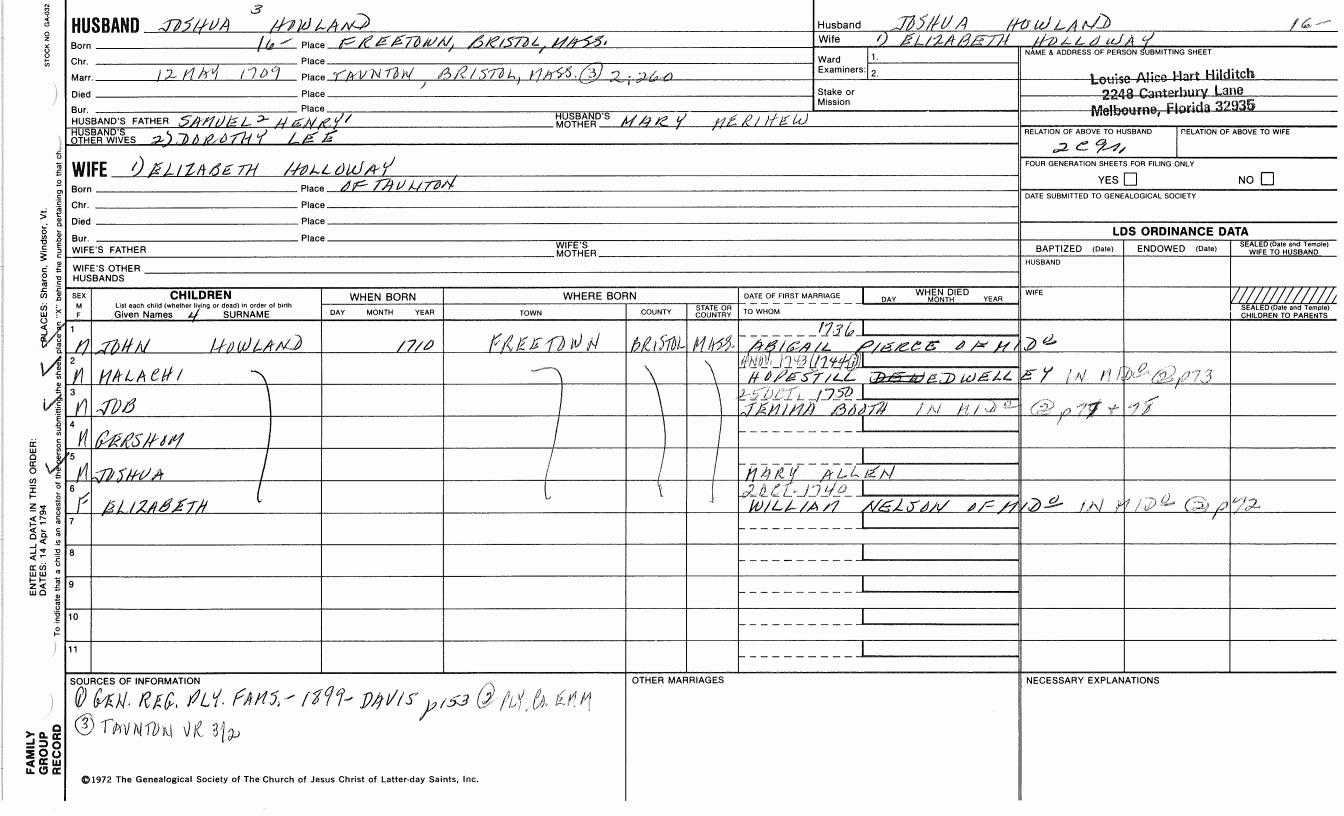 STOCK NO. GA-032
HUSBAND JOSHUA 3 HOWLAND
Born 16- Place FREETOWN, BRISTOL, MASS.
Chr. Place
Marr. 12 MAY 1709 Place TAUNTON, BRISTOL, MASS. (3) 2:260
Died Place
Bur. Place
HUSBAND'S FATHER SAMUEL 2 HENRY 1 HUSBAND'S MOTHER MARY MERIHEW
HUSBAND'S OTHER WIVES 2) DOROTHY LEE
WIFE 1) ELIZABETH HOLLOWAY
Born Place OF TAUNTON
Chr. Place
Died Place
Bur. Place
WIFE'S FATHER WIFE'S MOTHER
WIFE'S OTHER HUSBANDS
Husband JOSHUA HOWLAND 16-
Wife 1) ELIZABETH HOLLOWAY
Ward Examiners: 1. 2.
Stake or Mission
NAME & ADDRESS OF PERSON SUBMITTING SHEET
Louise Alice Hart Hilditch
2248 Canterbury Lane
Melbourne, Florida 32935
RELATION OF ABOVE TO HUSBAND RELATION OF ABOVE TO WIFE
FOUR GENERATION SHEETS FOR FILING ONLY
YES NO
DATE SUBMITTED TO GENEALOGICAL SOCIETY
LDS ORDINANCE DATA
BAPTIZED (Date) ENDOWED (Date) SEALED (Date and Temple) WIFE TO HUSBAND
HUSBAND
WIFE
SEALED (Date and Temple) CHILDREN TO PARENTS
SEX M F
CHILDREN
List each child (whether living or dead) in order of birth
Given Names 4 SURNAME
WHEN BORN
DAY MONTH YEAR
WHERE BORN
TOWN COUNTY STATE OR COUNTRY
DATE OF FIRST MARRIAGE
TO WHOM
WHEN DIED
DAY MONTH YEAR
1 M JOHN HOWLAND 1710 FREETOWN BRISTOL MASS. 1736
ABIGAIL PIERCE OF MIDº
2 M MALACHI
HOPESTILL DWELLEY IN MIDº (2) p73
3 M JOB 25 OCT. 1750
JEMIMA BOOTH IN MIDº (2)
4 M GERSHOM
5 M JOSHUA
MARY ALLEN
6 F ELIZABETH 2 OCT. 1740
WILLIAM NELSON OF MIDº IN MIDº (2) p42
7
8
9
10
11
SOURCES OF INFORMATION
(1) GEN. REG. PLY. FAMS. - 1899 - DAVIS p153 (2) PLY. CO.
(3) TAUNTON VR
OTHER MARRIAGES
NECESSARY EXPLANATIONS
©1972 The Genealogical Society of The Church of Jesus Christ of Latter-day Saints, Inc.
FAMILY GROUP RECORD
ENTER ALL DATA IN THIS ORDER:
DATES: 14 Apr 1794
PLACES: Sharon, Windsor, Vt.
To indicate that a child is an ancestor of the person submitting the sheet, place an "X" behind the number pertaining to that ch